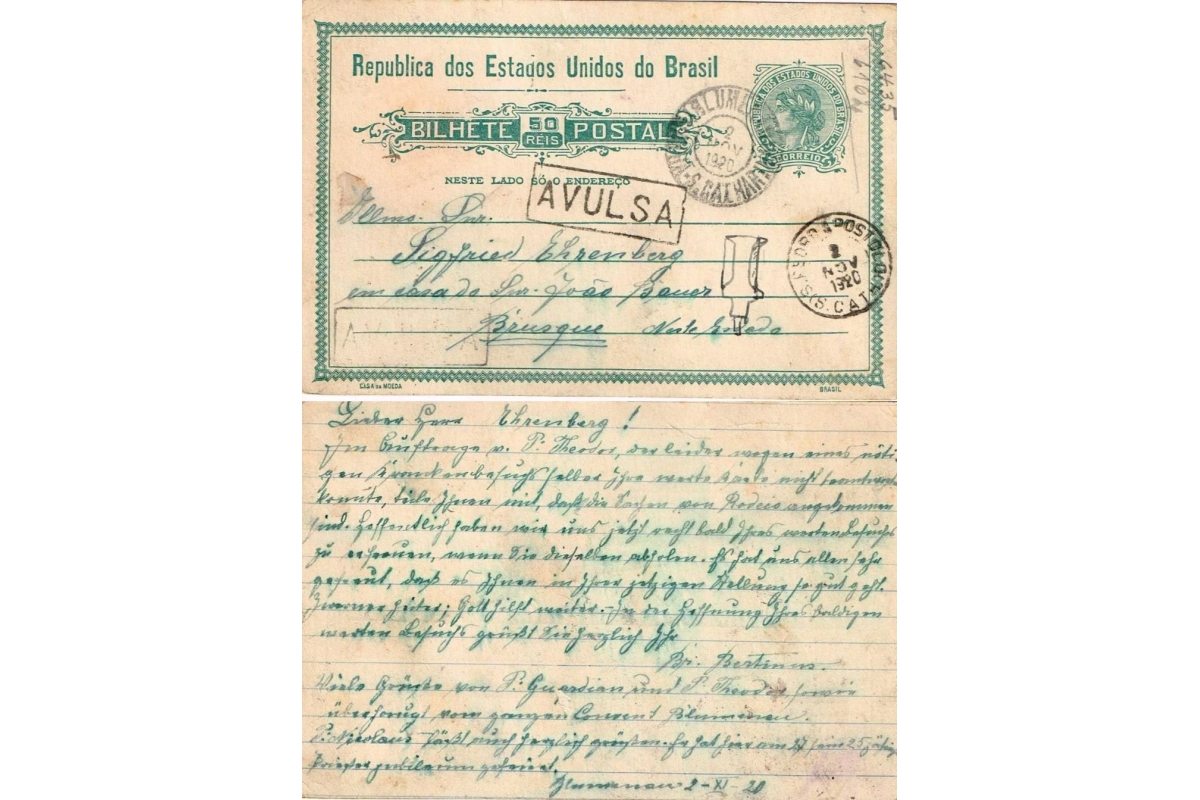 Republica dos Estados Unidos do Brasil
REPUBLICA DOS ESTADOS UNIDOS DO BRASIL
CORREIO
BILHETE 50 REIS POSTAL
NESTE LADO SÓ O ENDEREÇO
2 NOV 1920
AVULSA
6435
Illmo. Snr.
Sigfried Ehrenberg
em casa do Snr. João Bauer
Brusque Neste Estado
2 NOV 1920
AVULSA
CASA DA MOEDA
BRASIL
Lieber Herr Ehrenberg!
Im Auftrage v. P. Theodor, der leider wegen eines nöti-
gen Krankenbesuchs selber Ihre werte Karte nicht beantworten
konnte, teile Ihnen mit, daß die Sachen von Rodeio angekommen
sind. Hoffentlich haben wir uns jetzt recht bald Ihres werten Besuchs
zu erfreuen, wenn Sie dieselben abholen. Es hat uns allen sehr
gefreut, daß es Ihnen in Ihrer jetzigen Stellung so gut geht.
Gott hilft weiter. In der Hoffnung Ihres baldigen
werten Besuchs grüßt Sie herzlich Ihr
Br. Bertinus.
Viele Grüße von P. Guardian und P. Theodor sowie
überhaupt vom ganzen Convent Blumenau.
P. Nicolaus läßt auch herzlich grüßen. Er hat hier am 27 sein 25 jährig
Priesterjubiläum gefeiert.
Blumenau 2-XI-20